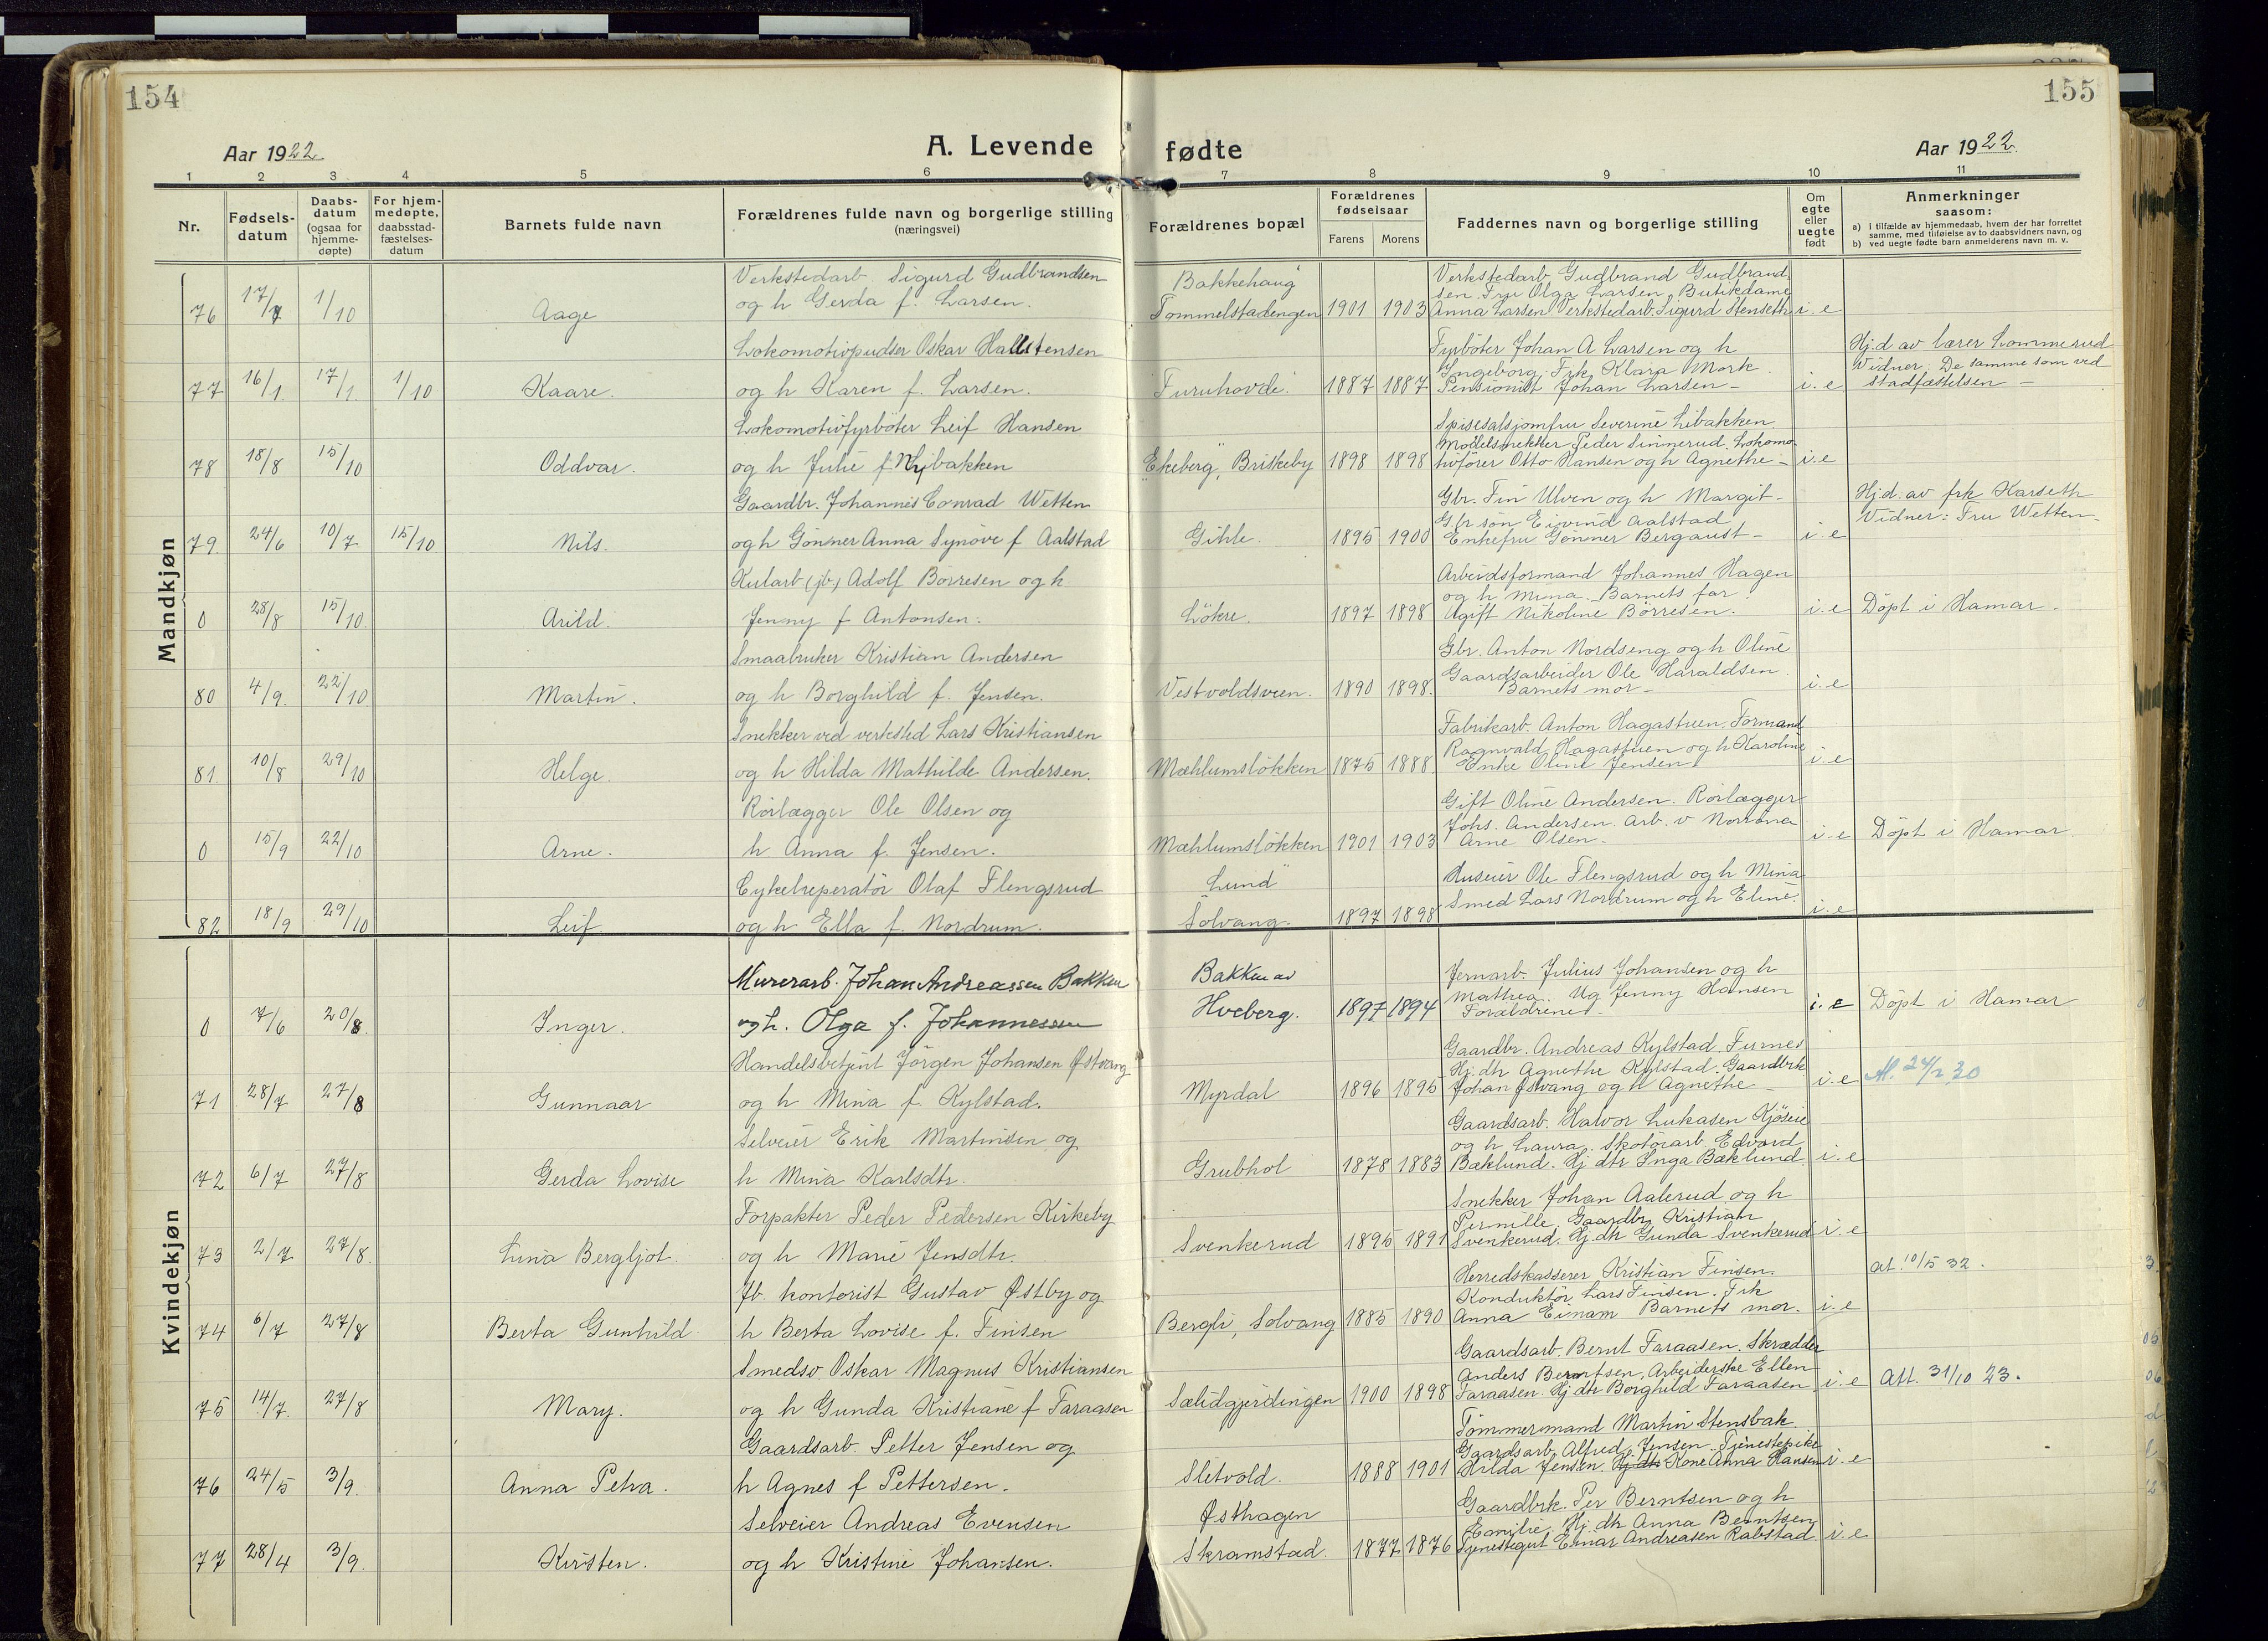 154
155
Aar 1922
A. Levende fødte
Aar 1922.
1 2 3 4 5 6 7 8 9 10 11
Nr.
Fødsels-
datum
Daabs-
datum
(ogsaa for
hjemme-
døpte)
For hjem-
medøpte,
daabsstad-
fæstelses-
datum
Barnets fulde navn
Forældrenes fulde navn og borgerlige stilling
(næringsvei)
Forældrenes bopæl
Forældrenes
fødselsaar
Farens Morens
Faddernes navn og borgerlige stilling
Om
egte
eller
uegte
født
Anmerkninger
saasom:
a) i tilfælde av hjemmedaab, hvem der har forrettet
samme, med tilføielse av to daabsvidners navn, og
b) ved uegte fødte barn anmelderens navn m. v.
Mandkjøn
76 17/7 1/10 Aage
Verkstedarb. Sigurd Gudbrandsen
og h Gerda f. Larsen.
Bakkehaug
Tommelstadengen 1901 1903
Verkstedarb. Gudbrand Gudbrand-
sen. Fru Olga Larsen, Butikdame
Anna Larsen. Verkstedarb. Sigurd Stenseth i. e
77 16/1. 17/1. 1/10 Kaare.
Lokomotivpudser Oskar Hallstensen
og h Karen f. Larsen.
Furuhovde. 1887 1887
Fyrböter Johan A Larsen og h
Ingeborg. Frk Klara Mork.
Pensionist Johan Larsen – i. e
Hj.d av lærer Lommerud
Vidner. De samme som ved
stadfæstelsen –
78 18/8 15/10 Oddvar.
Lokomotivfyrböter Leif Hansen
og h Julie f. Nybakken
"Ekeberg", Briskeby 1898 1898
Spisesalsjomfru Severine Libakken
Modelsnekker Peder Sinnerud. Lokomo-
tivförer Otto Hansen og h Agnethe – i. e
79. 24/6 10/7 15/10 Nils.
Gaardbr. Johannes Conrad Wetten
og h Gönner Anna Synöve f Aalstad
Gihle. 1895 1900
Gbr. Fin Ulven og h Margit –
Gbr sön Eivind Aalstad
Enkefru Gönner Bergaust – i. e
Hj.d. av frk Karseth
Vidner: Fru Wetten –
0 28/8 15/10. Arild.
Kularb (jb) Adolf Börresen og h
Jenny f Antonsen.
Lökre. 1897 1898
Arbeidsformand Johannes Hagen
og h Mina. Barnets far.
Ugift Nikoline Börresen. i. e Döpt i Hamar.
80 4/9. 22/10 Martin.
Smaabruker Kristian Andersen
og h Borghild f. Jensen.
Vestvoldsveen. 1890 1898.
Gbr. Anton Nordseng og h Oline
Gaardsarbeider Ole Haraldsen.
Barnets mor – i. e
81. 10/8 29/10 Helge.
Snekker ved verksted Lars Kristiansen
og h Hilda Mathilde Andersen.
Mæhlumslökken 1875 1888.
Fabrikarb. Anton Hagastuen. Formand
Ragnvald Hagastuen og h Karoline
Enke Oline Jensen i. e
0 15/9 22/10 Arne.
Rörlægger Ole Olsen og
h Anna f. Jensen.
Mæhlumslökken 1901 1903
Gift Oline Andersen. Rörlægger
Johs. Andersen. Arb. v Norrøna
Arne Olsen – i. e Döpt i Hamar.
82 18/9 29/10 Leif
Cykelreperatör Olaf Flengsrud
og h Ella f. Nordrum.
"Lund"
Solvang. 1897 1898
Huseier Ole Flengsrud og h Mina
Smed Lars Nordrum og h Eline. i. e
Kvindekjøn
0 7/6 20/8. Inger.
Murerarb. Johan Andreassen Bakken
og h. Olga f. Johannessen
Bakken av
Hveberg. 1897 1894
Jernarb. Julius Johansen og h
Mathea. Ug Jenny Hansen
Forældrene – i. e Döpt i Hamar
71 28/7 27/8 Gunnaar
Handelsbetjent Jörgen Johansen Østvang
og h Mina f. Kylstad.
Myrdal 1896 1895
Gaardbr. Andreas Kylstad. Furnes
Hj. dtr Agnethe Kylstad. Gaardbrk
Johan Østvang og h Agnethe – i. e At. 24/2 30
72 6/7 27/8 Gerda Lovise
Selveier Erik Martinsen og
h Mina Karlsdtr.
Grubhol 1878 1883
Gaardsarb. Halvor Lukasen Kjöseie
og h Laura. Skotöiarb. Edvard
Bæklund. Hj dtr Inga Bæklund. i. e
73 2/7 27/8. Lina Bergljot.
Forpakter Peder Pedersen Kirkeby
og h Marie Jensdtr.
Svenkerud 1895 1891
Snekker Johan Aalerud og h
Pernille. Gaardbr Kristian
Svenkerud. Hj. dtr Gunda Svenkerud i. e
74 6/7 27/8 Berta Gunhild.
Jb. kontorist Gustav Østby og
h Berta Lovise f. Finsen
Bergli, Solvang 1885 1890
Herredskasserer Kristian Finsen.
Konduktör Lars Finsen. Frk
Anna Einam Barnets mor. i. e
at. 10/5 32.
75 14/7. 27/8 Mary.
Smedsv. Oskar Magnus Kristiansen
og h Gunda Kristiane f Faraasen
Sælidgjerdingen 1900 1898
Gaardsarb. Bernt Faraasen. Skrædder
Anders Berntsen, Arbeiderske Ellen
Faraasen. Hj dtr Borghild Faraasen i. e Att. 31/10 23.
76 24/5 3/9. Anna Petra.
Gaardsarb. Petter Jensen og
h Agnes f Pettersen.
Sletvold. 1888 1901
Tömmermand Martin Stensbak.
Gaardsarb. Alfred Jensen. Tjenestepike
Hilda Jensen. Hj dtr Kone Anna Hansen i. e
77 28/4 3/9. Kirsten.
Selveier Andreas Evensen
og h Kristine Johansen.
Østhagen
Skramstad. 1877 1876
Gaardbrk. Per Berntsen og h
Emilie. Hj. dtr Anna Berntsen
Tjenestegut Einar Andreasen Rabstad i. e